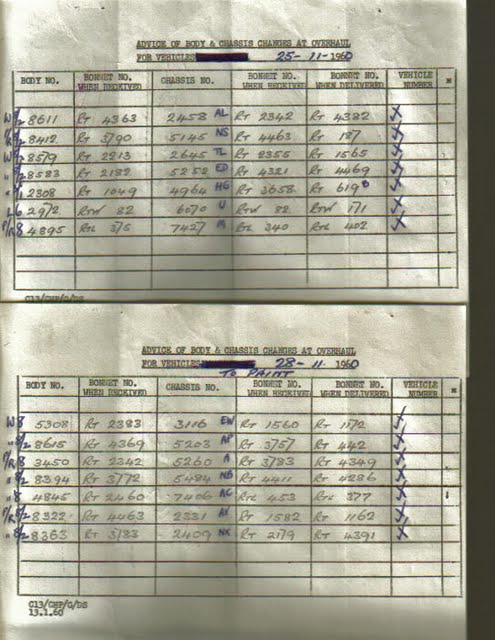 ADVICE OF BODY & CHASSIS CHANGES AT OVERHAUL
FOR VEHICLES 25-11-1960
BODY NO. BONNET NO. WHEN RECEIVED CHASSIS NO. BONNET NO. WHEN RECEIVED BONNET NO. WHEN DELIVERED VEHICLE NUMBER
8611 RT 4363 2458 AL RT 2342 RT 4382 X
8412 RT 3790 5145 NS RT 4463 RT 187 X
8579 RT 2213 2645 TL RT 2355 RT 1565 X
8583 RT 2182 5252 ED RT 4321 RT 4469 X
2308 RT 1049 4964 HG RT 3658 RT 619 X
2972 RTW 82 6070 U RTW 82 RTW 171 X
P/R 8 4895 RTL 375 7427 RTL 340 RTL 402 X
C13/CHP/G/DS
ADVICE OF BODY & CHASSIS CHANGES AT OVERHAUL
FOR VEHICLES 28-11-1960
TO PAINT
BODY NO. BONNET NO. WHEN RECEIVED CHASSIS NO. BONNET NO. WHEN RECEIVED BONNET NO. WHEN DELIVERED VEHICLE NUMBER
W 8 5308 RT 2383 3116 EW RT 1560 RT 1172 X
" 8/2 8615 RT 4369 5203 AP RT 3757 RT 442 X
P/R 8 3450 RT 2342 5260 A RT 3783 RT 4349 X
" 8/2 8394 RT 3772 5484 NB RT 4411 RT 4286 X
" 8 4845 RTL 2460 7406 AC RTL 453 RTL 377 X
P/R 8/2 8322 RT 4463 2331 AX RT 1582 RT 1162 X
" 8/2 8363 RT 3183 2409 NK RT 2179 RT 4391 X
C13/CHP/G/DS
13.1.60